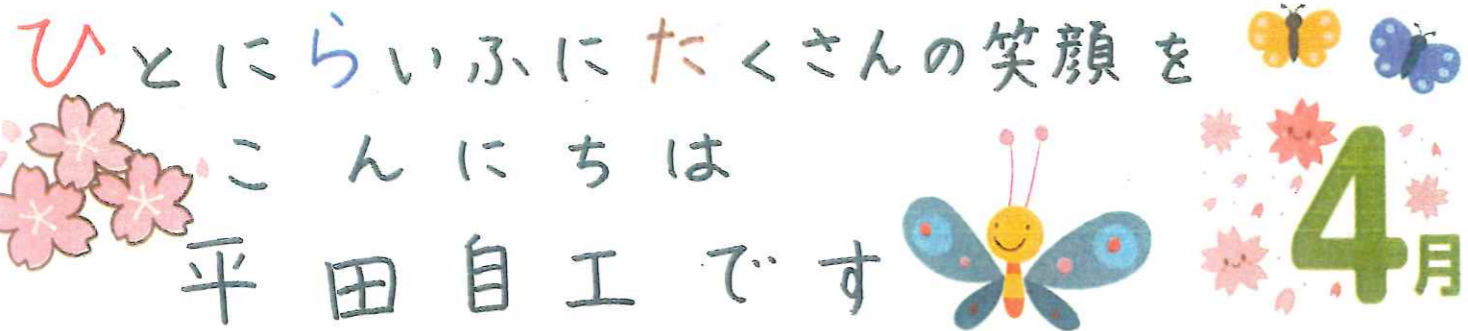 ひとにらいふにたくさんの笑顔を
こんにちは
平田自工です
4月